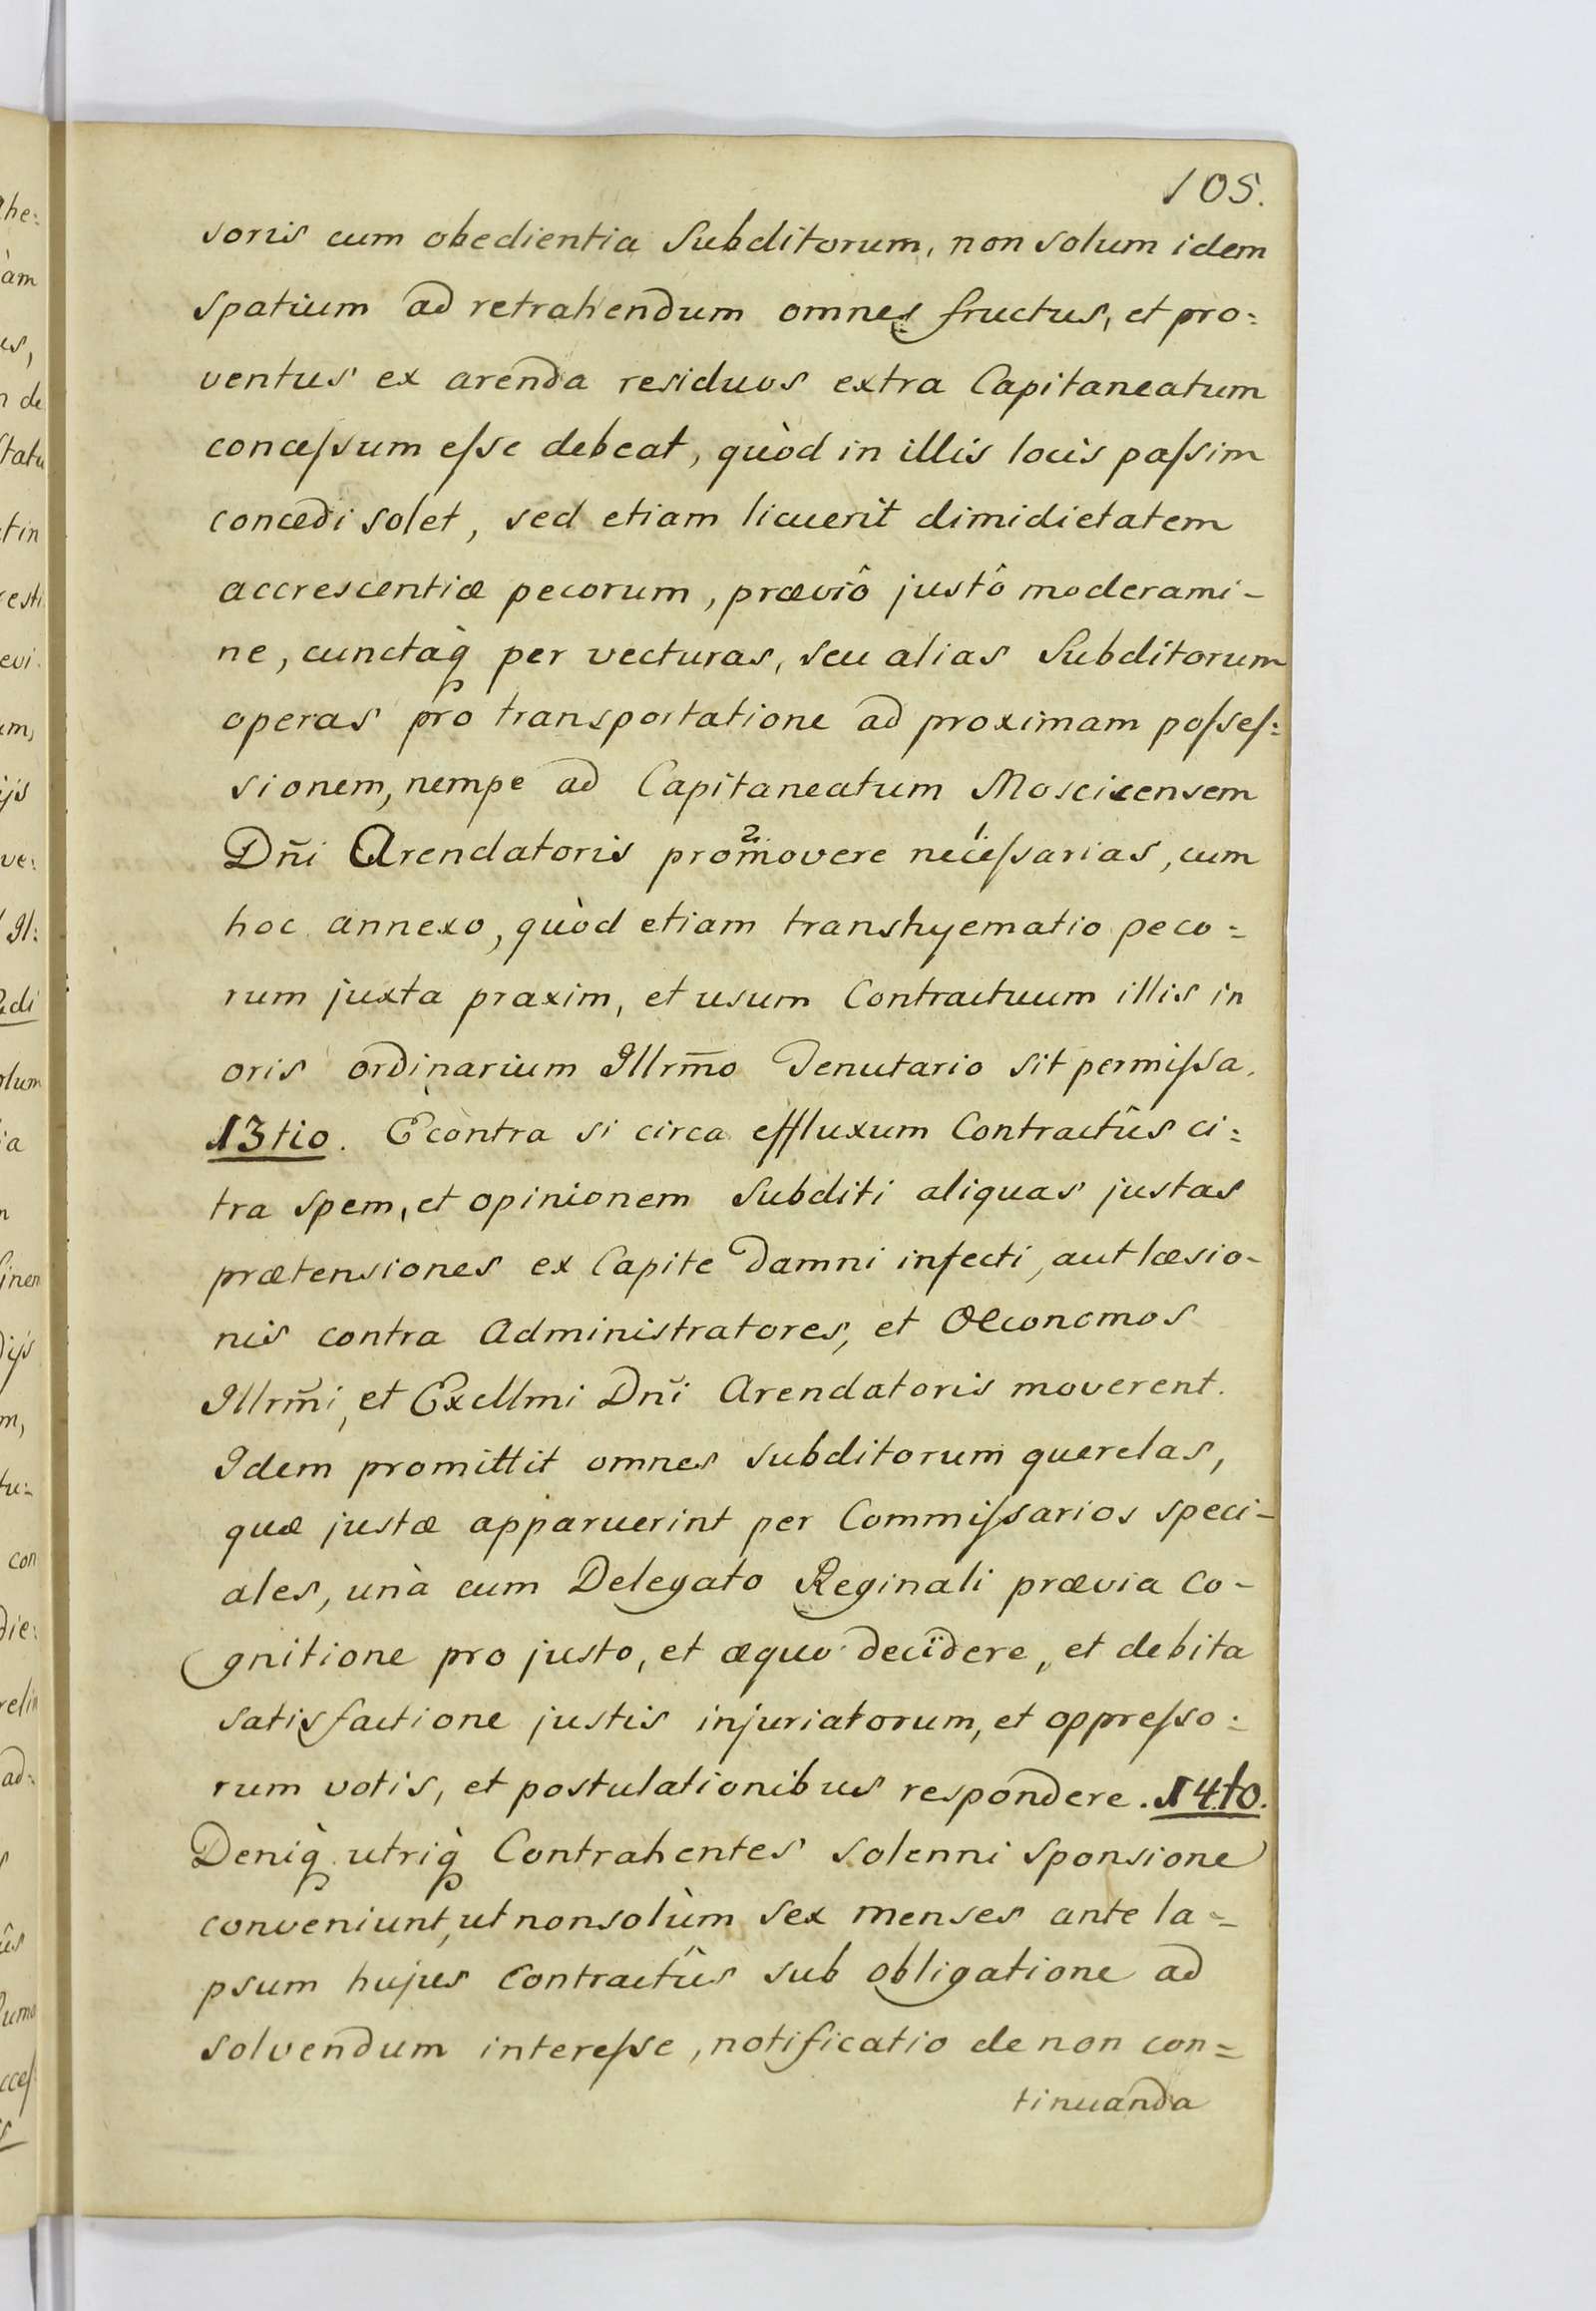 105.
soris cum obedientia Subditorum, non solum idem
spatium ad retrahendum omnes fructus, et pro:
ventus ex arenda residuos extra Capitaneatum
conceſsum eſse debeat, quòd in illis locis paſsim
concedi solet, sed etiam licuerit dimidietatem
accrescentiæ pecorum, præviô justô moderami-
ne, cunctaq̀ per vecturas, seu alias Subditorum
operas pro transportatione ad proximam poſseſ:
sionem, nempe ad Capitaneatum Moscicensem
Dn̄i Arendatoris 2. promovere 1. neceſsarias, cum
hoc annexo, quòd etiam transhyematio peco=
rum juxta praxim, et usum Contractuum illis in
oris ordinarium Illrm̄o Tenutario sit permiſsa.
13tio. Econtra si circa effluxum Contractûs ci:
tra spem, et opinionem Subditi aliquas justas
prætensiones ex Capite Damni infecti, aut læsio-
nis contra Administratores, et Oeconomos
Illrm̄i, et Excllmi Dn̄i Arendatoris moverent.
Idem promittit omnes subditorum querelas,
quæ justæ apparuerint per Commiſsarios speci-
ales, unà cum Delegato Reginali prævia co-
gnitione pro justo, et æquo decidere, et debita
satisfactione justis injuriatorum, et oppreſso:
rum votis, et postulationibus respondere. 14to.
Deniq̀ utriq̀ Contrahentes solenni sponsione
conveniunt, ut nonsolùm sex menses ante la=
psum hujus Contractûs sub obligatione ad
solvendum intereſse, notificatio de non con=
tinuanda